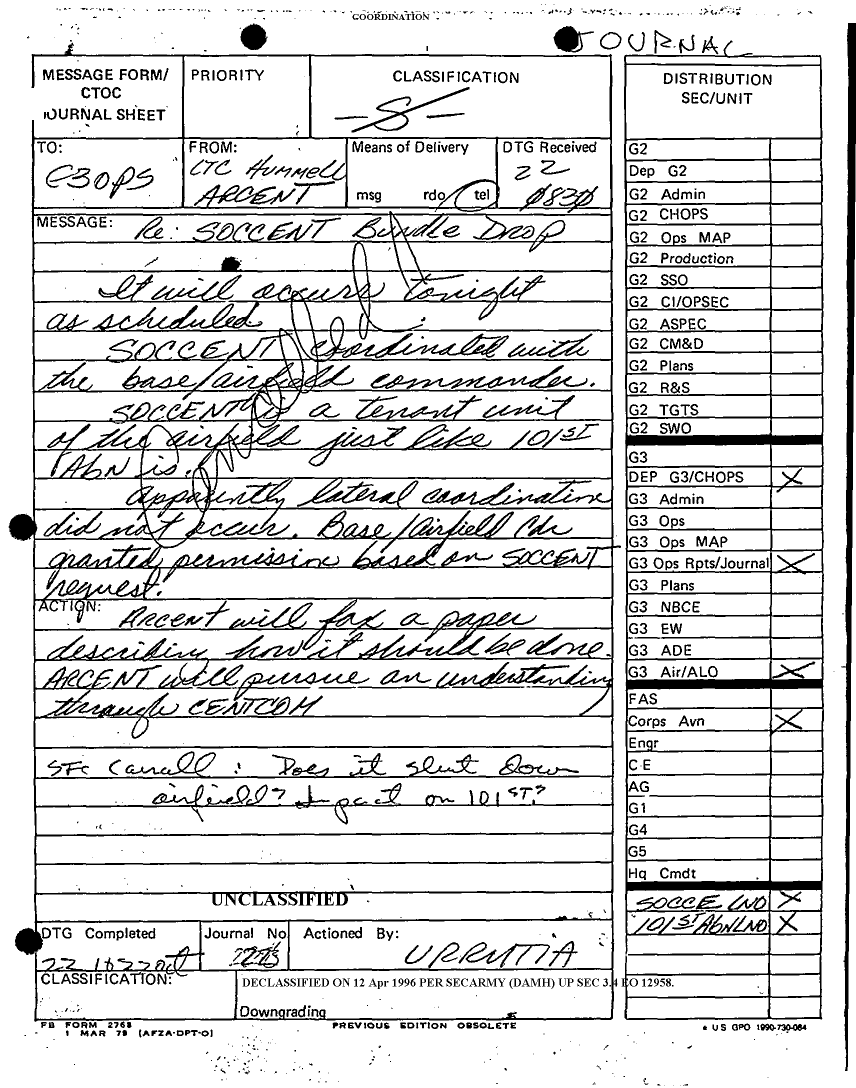 COORDINATION
JOURNAL
MESSAGE FORM/
CTOC
JOURNAL SHEET
PRIORITY
CLASSIFICATION
-S-
TO:
G3OPS
FROM:
LTC HUMMELL
ARCENT
Means of Delivery
msg rdo tel
DTG Received
22
0830
MESSAGE:
Re: SOCCENT Bundle Drop
It will occur tonight
as scheduled.
SOCCENT coordinated with
the base/airfield commander.
SOCCENT is a tenant unit
of the airfield just like 101ST
Abn is.
Apparently lateral coordination
did not occur. Base/Airfield Cdr
granted permission based on SOCCENT
request.
Cancelled
ACTION:
ARCENT will fax a paper
describing how it should be done.
ARCENT will pursue an understanding
through CENTCOM
SFC Carrall: Does it shut down
airfield? Impact on 101ST?
UNCLASSIFIED
DTG Completed
22
Journal No
Actioned By:
URRUTIA
CLASSIFICATION:
DECLASSIFIED ON 12 Apr 1996 PER SECARMY (DAMH) UP SEC 3.4 EO 12958.
Downgrading
FB FORM 2768
1 MAR 79 (AFZA-DPT-O)
PREVIOUS EDITION OBSOLETE
* US GPO 1990-730-084
DISTRIBUTION
SEC/UNIT
G2
Dep G2
G2 Admin
G2 CHOPS
G2 Ops MAP
G2 Production
G2 SSO
G2 CI/OPSEC
G2 ASPEC
G2 CM&D
G2 Plans
G2 R&S
G2 TGTS
G2 SWO
G3
DEP G3/CHOPS X
G3 Admin
G3 Ops
G3 Ops MAP
G3 Ops Rpts/Journal X
G3 Plans
G3 NBCE
G3 EW
G3 ADE
G3 Air/ALO X
FAS
Corps Avn X
Engr
C-E
AG
G1
G4
G5
Hq Cmdt
SOCCE LNO X
101ST Abn LNO X